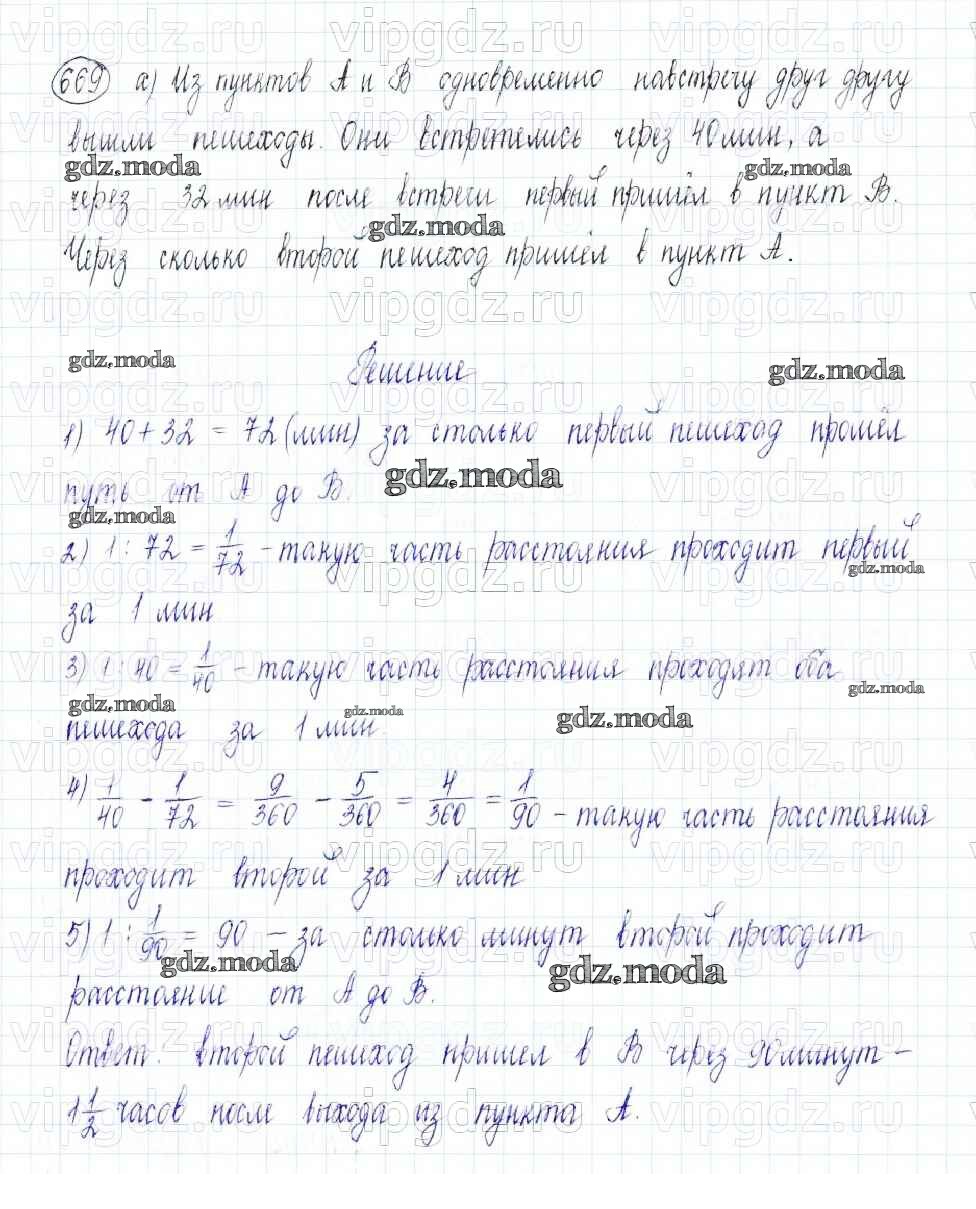 669 а) Из пунктов А и В одновременно навстречу друг другу
вышли пешеходы. Они встретились через 40 мин, а
gdz.moda gdz.moda
через 32 мин после встречи первый пришёл в пункт В.
gdz.moda
Через сколько второй пешеход пришёл в пункт А.
gdz.moda
Решение
gdz.moda
1) 40 + 32 = 72 (мин) за столько первый пешеход прошёл
путь от А до В.
gdz.moda
gdz.moda
2) 1 : 72 = 1/72 - такую часть расстояния проходит первый
gdz.moda
за 1 мин
3) 1 : 40 = 1/40 - такую часть расстояния проходят оба
gdz.moda
gdz.moda gdz.moda gdz.moda
пешехода за 1 мин
4) 1/40 - 1/72 = 9/360 - 5/360 = 4/360 = 1/90 - такую часть расстояния
проходит второй за 1 мин
5) 1 : 1/90 = 90 - за столько минут второй проходит
gdz.moda gdz.moda
расстояние от А до В.
Ответ: второй пешеход пришел в В через 90 минут -
1 1/2 часов после выхода из пункта А.
vipgdz.ru